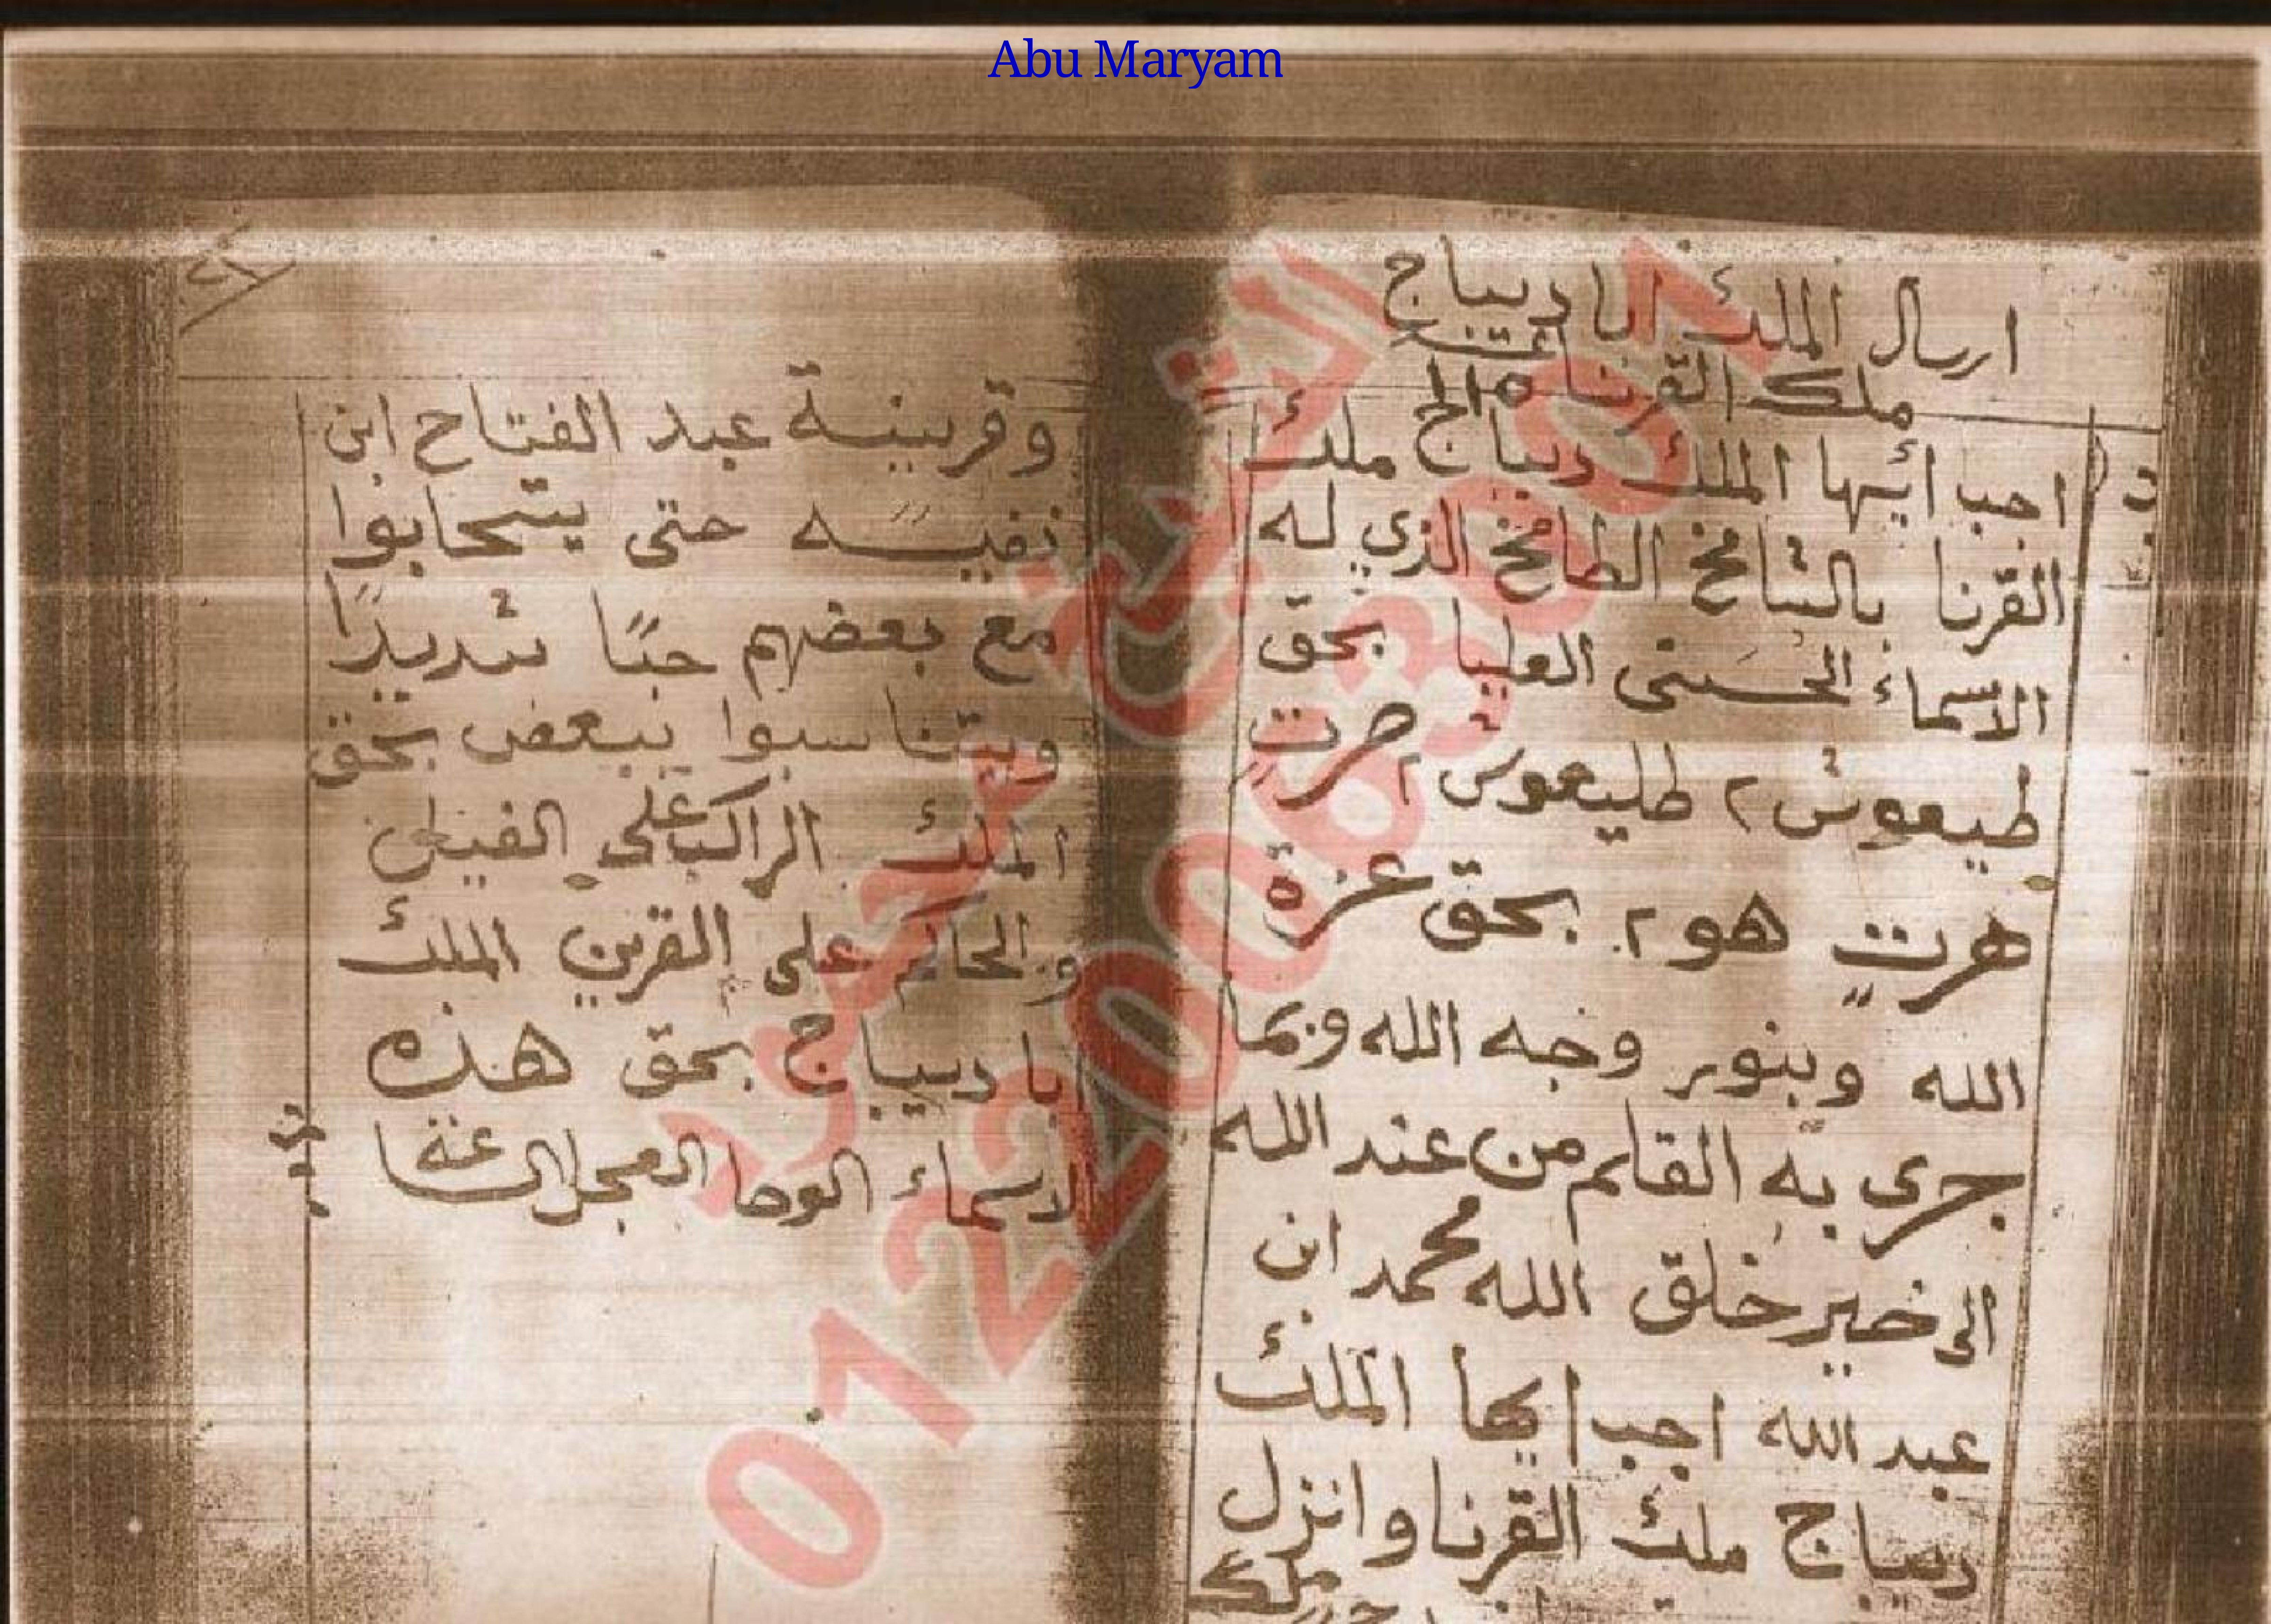 Abu Maryam
ارسال الملك ابا ديباج
ملك القرنا
اجب ائيها الملك ديباج ملك
القرنا بالشامخ الطامخ الذي له
الاسماء الحسنى العليا بحق
طيعوش ٢ طليعوش ٢ هرت
هرت هو ٢ بحق عزة
الله وبنور وجه الله وبما
جرى به القلم من عند الله
الى خير خلق الله محمد ابن
عبد الله اجب ايها الملك
ديباج ملك القرنا وانزل
وقرينة عبد الفتاح ابن
نفيسه حتى يتحابوا
مع بعضهم حبًا شديدًا
ويتناسبوا ببعض بحق
الملك الراكب على الفيل
والحاكم على القرين الملك
ابا ديباج بحق هذه
الاسماء الوحا العجل الساعة
01220083001